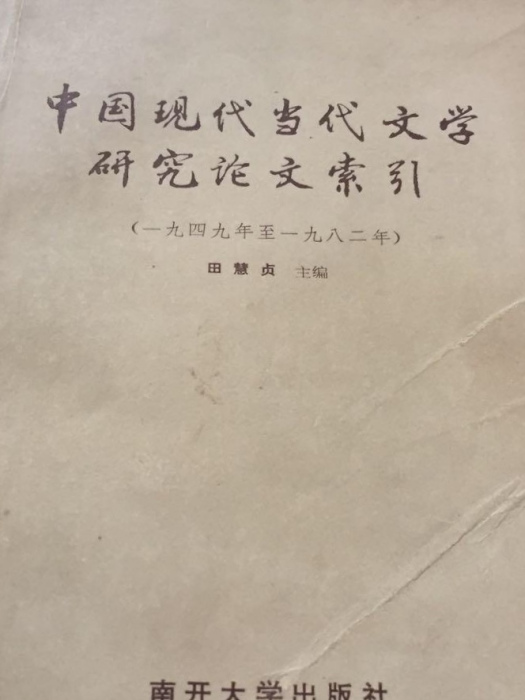 中国现代当代文学
研究论文索引
(一九四九年至一九八二年)
田慧贞 主编
南开大学出版社